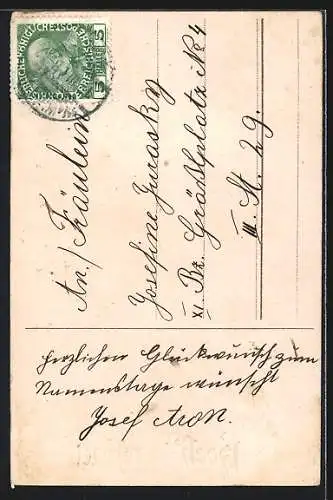 An / Fräulein
Josefine
XI. Bz. Gräßlplatz No 4
III. St. 29.
Herzlichen Glückwunsch zum
Namenstage wünscht
Josef Aron.
5 5